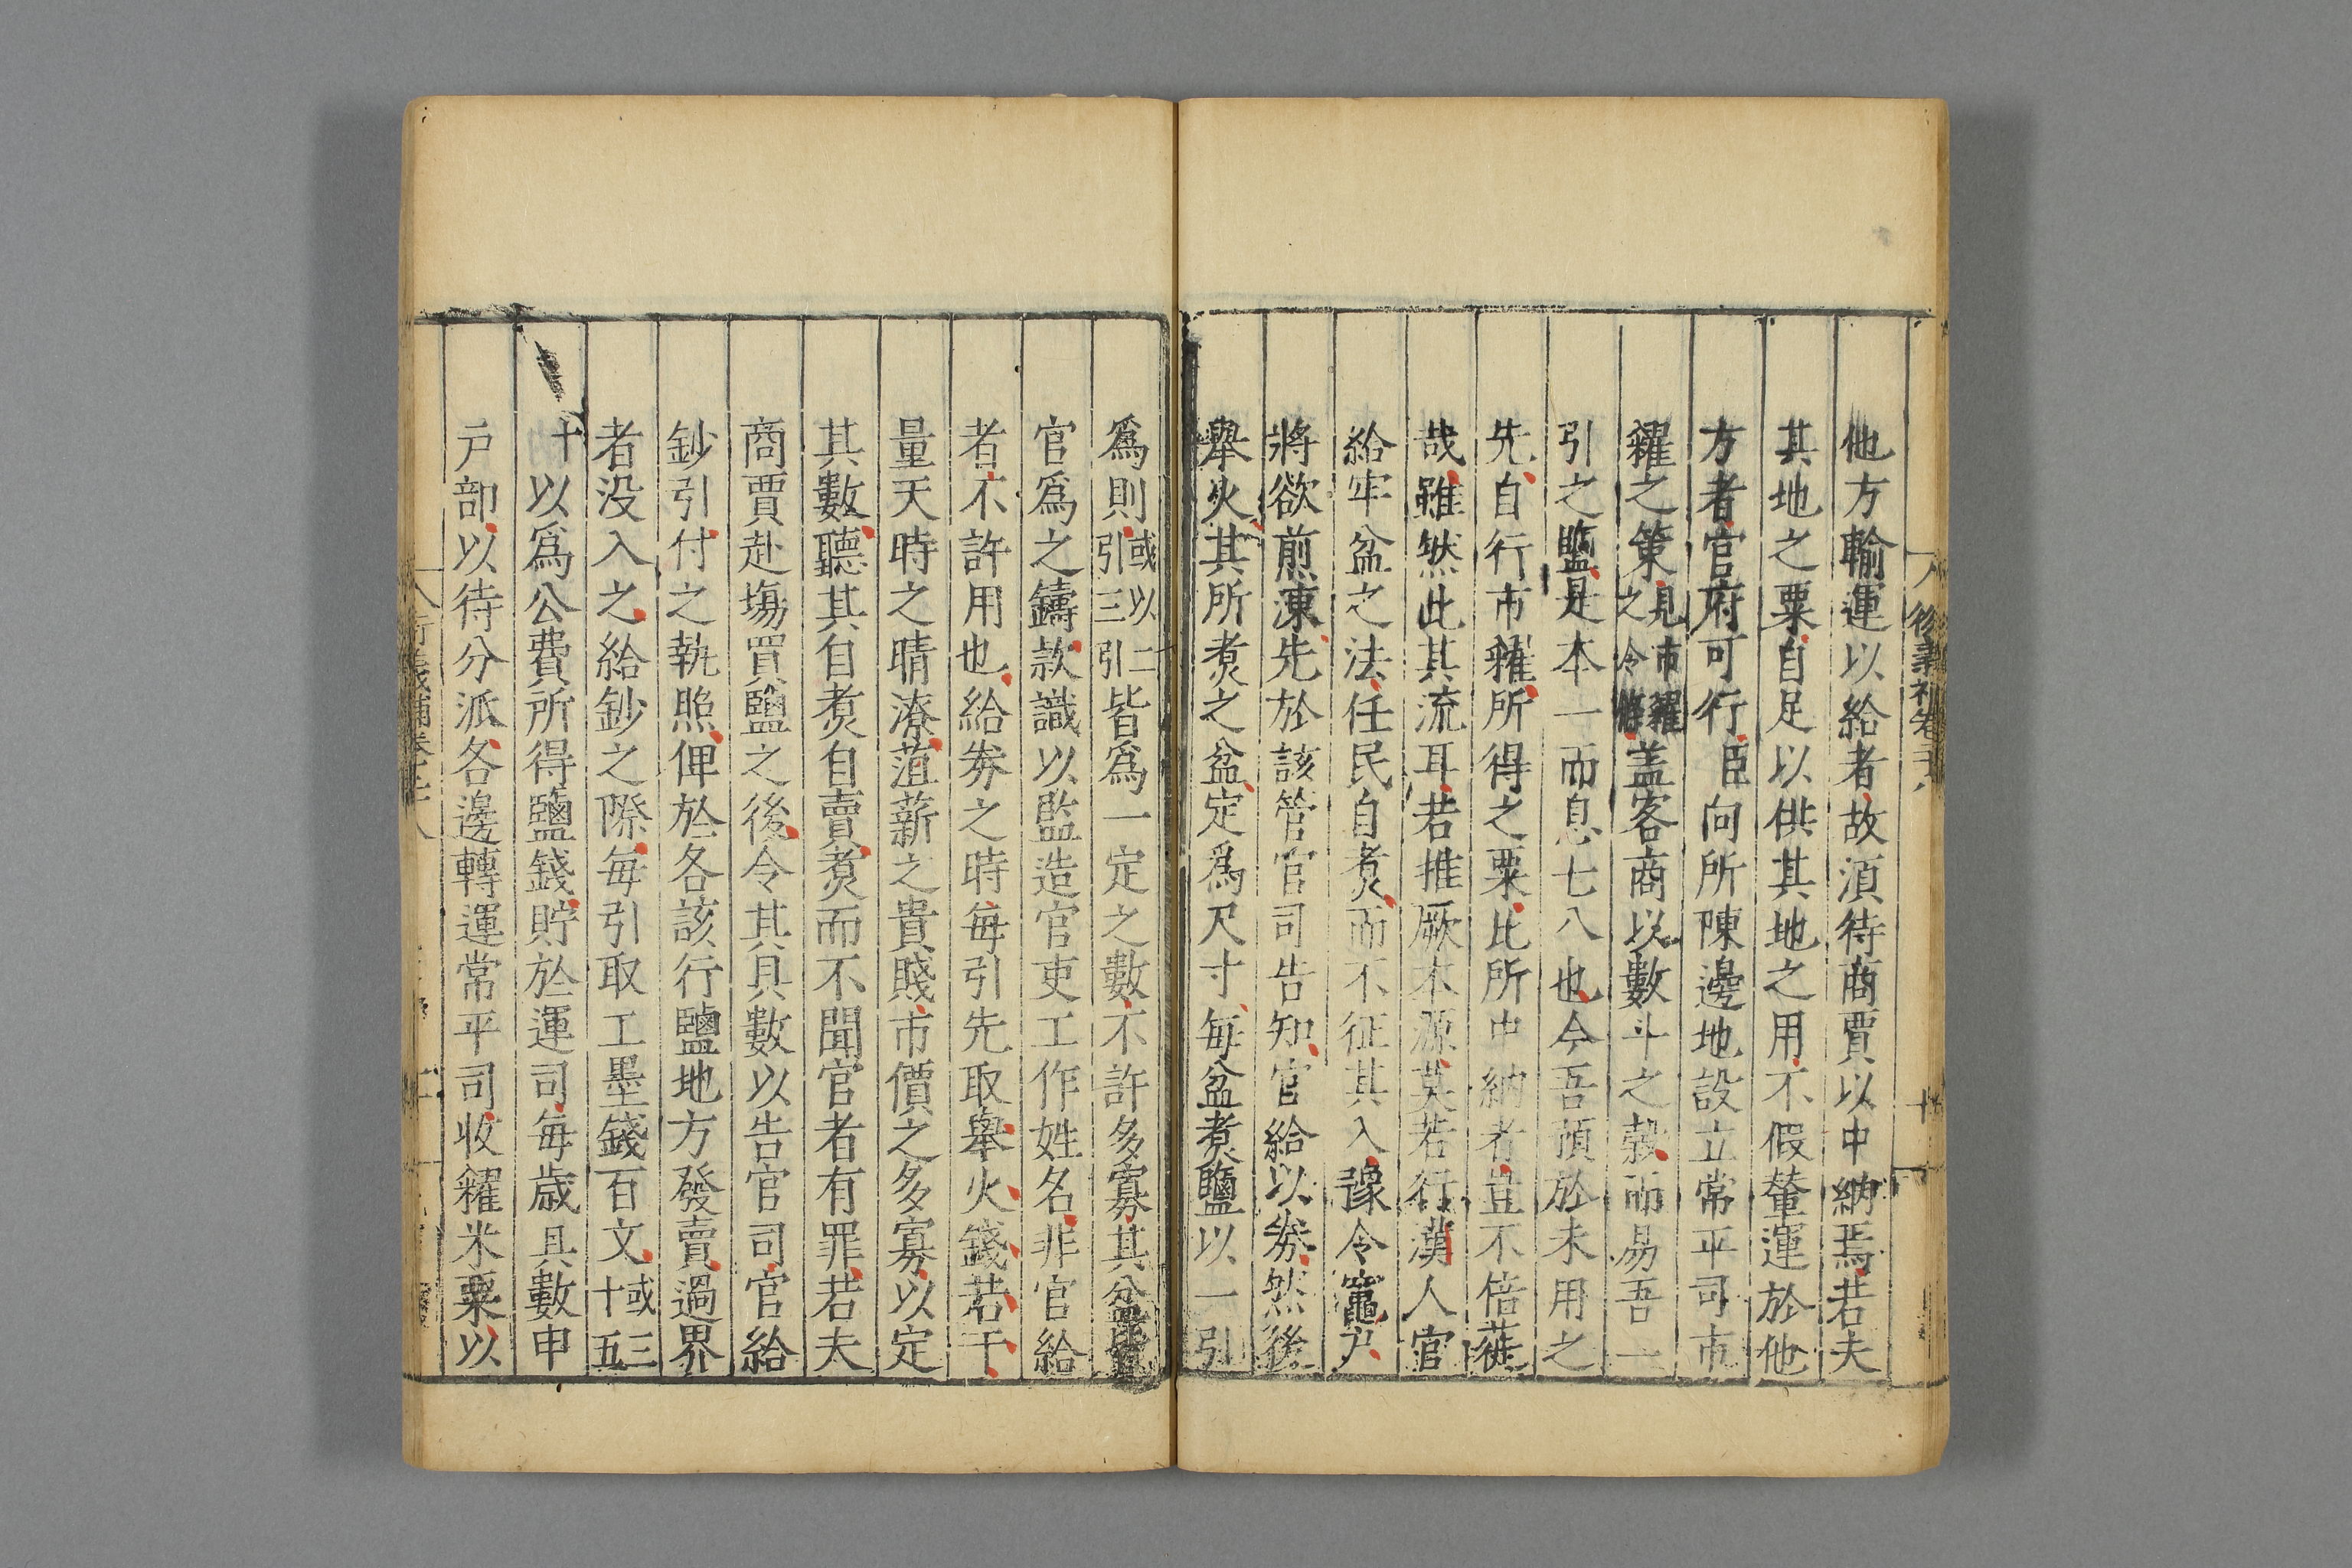 他方輸運以給者故湏待商賈以中納焉若夫
其地之粟自足以供其地之用不假輦運於他
方者官府可行臣向所陳邊地設立常平司市
糴之策見市糴之令條盖客商以數斗之穀而易吾一
引之鹽是本一而息七八也今吾預於未用之
先自行市糴所得之粟比所中納者豈不倍蓰
哉雖然此其流耳若推厥本源莫若行漢人官
給牢盆之法任民自煮而不征其入豫令竈戶
將欲煎凍先於該管官司告知官給以劵然後
舉火其所煮之盆定爲尺寸每盆煮鹽以一引
爲則或以二引三引皆爲一定之數不許多寡其盆皆
官爲之鑄款識以監造官吏工作姓名非官給
者不許用也給劵之時每引先取舉火錢若干
量天時之晴潦葅薪之貴賤市價之多寡以定
其數聽其自煮自賣煮而不聞官者有罪若夫
商賈赴塲買鹽之後令其具數以告官司官給
鈔引付之執照俾於各該行鹽地方發賣過界
者没入之給鈔之際每引取工墨錢百文或三十五
十以爲公費所得鹽錢貯於運司每歲具數申
戶部以待分派各邊轉運常平司收糴米粟以